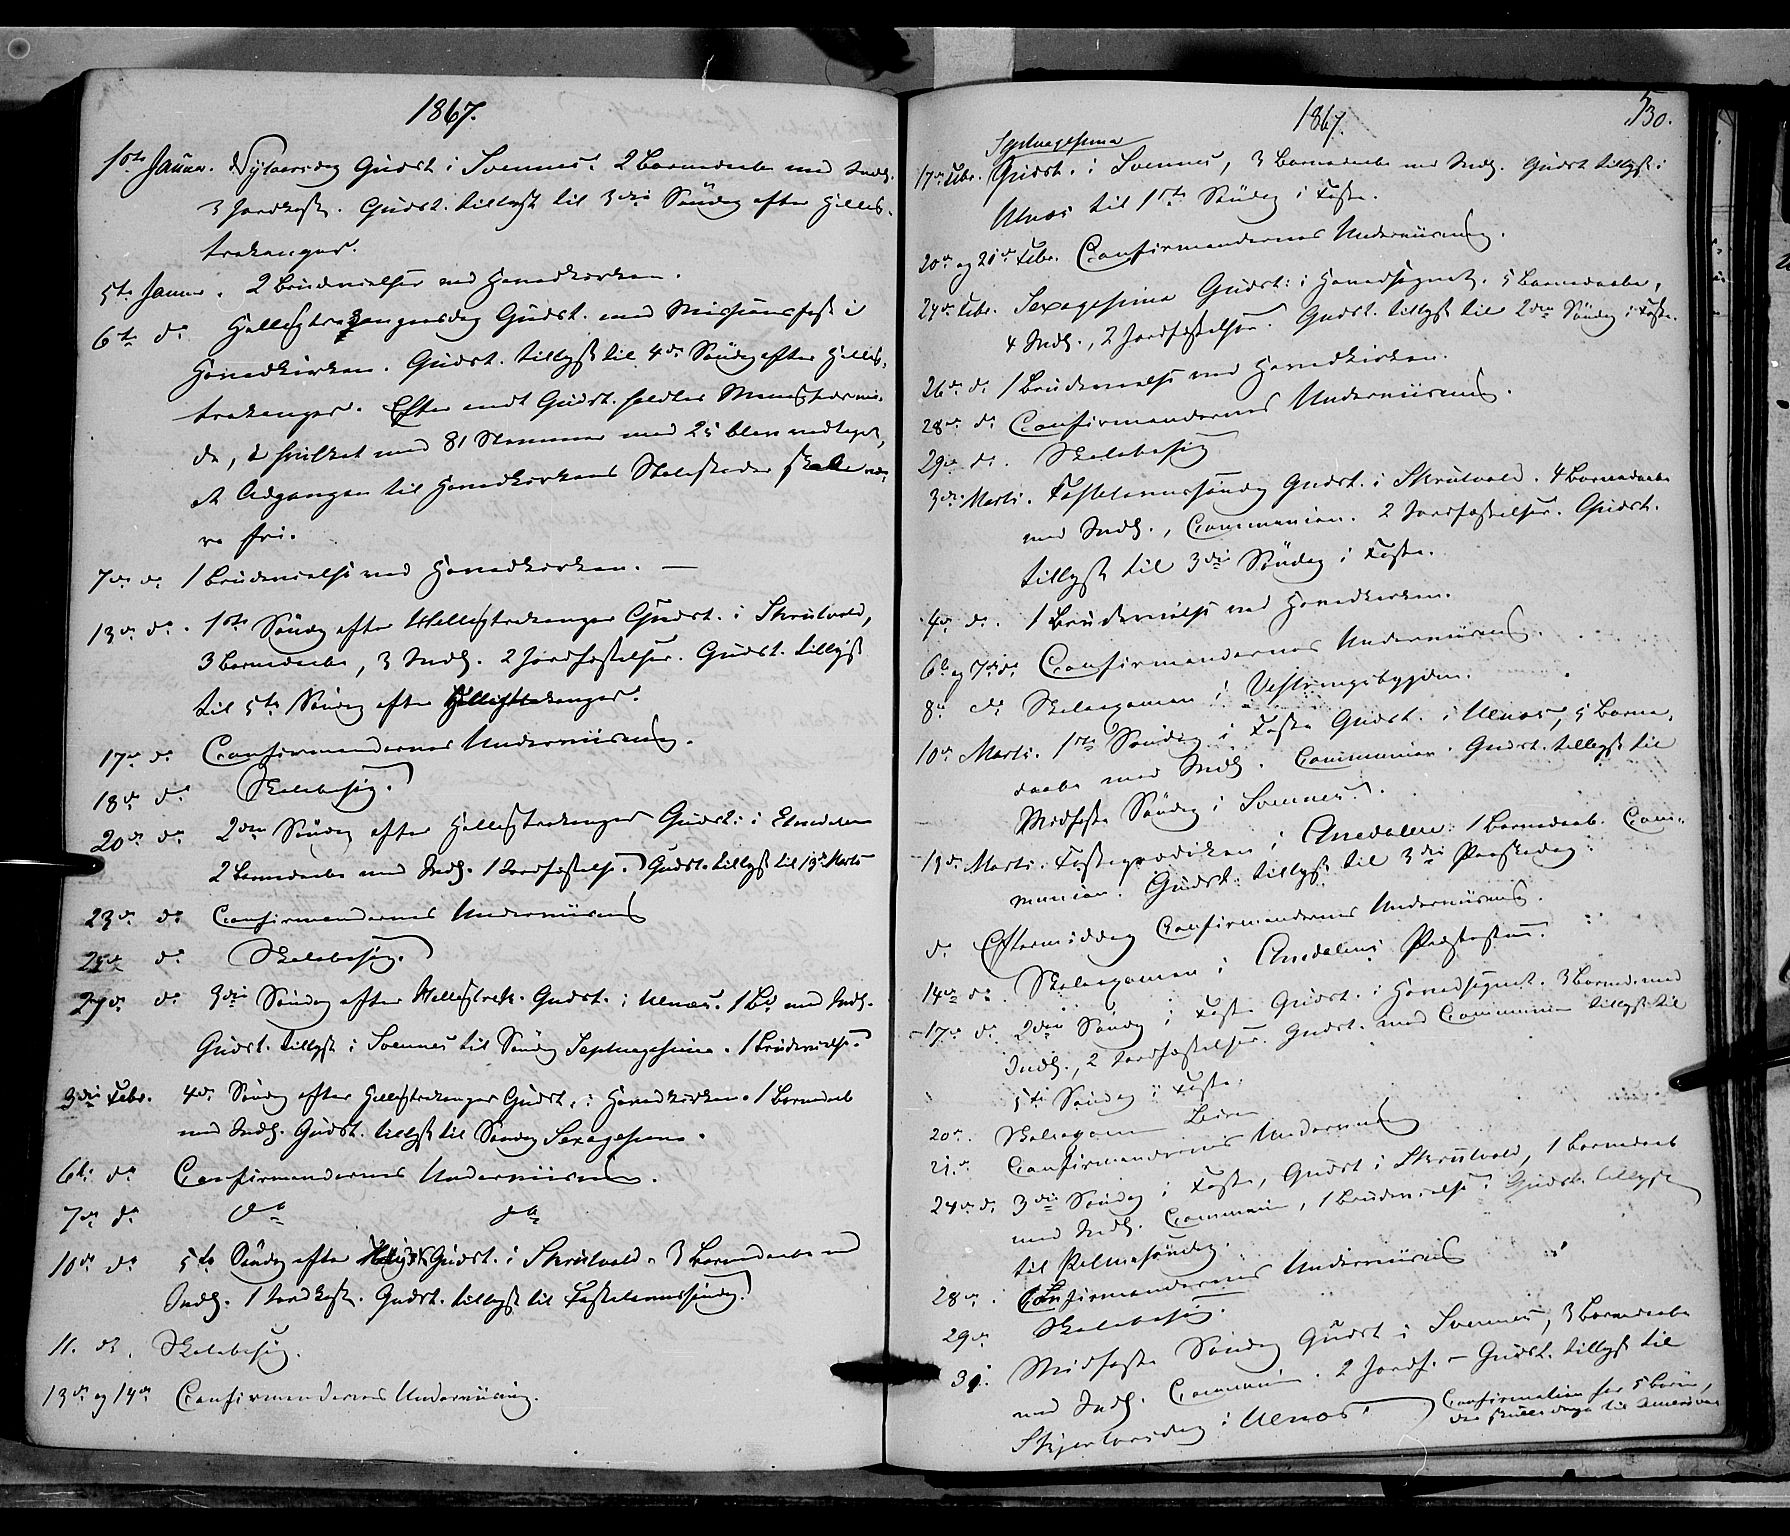 1867.
1ste Januar. Nytaarsdag Gudst. i Svennes. 2 Barnedaabe med Indl.
3 Jordkast. Gudst. tillyst til 3die Söndag efter Hellig-
trekonger.
5te Januar. 2 Brudevielser ved Hovedkirken.
6te do Helligtrekongersdag Gudst. med Missionsfest i
Hovedkirken. Gudst. tillyst til 4de Söndag efter Hellig-
trekonger. Efter endt Gudst. holdtes
de, i hvilket med 81 Stemmer mod 25 blev vedtaget,
at Adgangen til Hovedkirkens Stolestader skulde væ-
re fri.
7de do 1 Brudevielse ved Hovedkirken. —
13de do. 1ste Söndag efter Helligtrekonger Gudst. i Skrutvold,
3 Barnedaabe, 3 Indl. 2 Jordfæstelser. Gudst. tillyst
til 5te Söndag efter Helligtrekonger.
17de do Confirmandernes Underviisning.
18de do Skolebesög.
20de do 2den Söndag efter Helligtrekonger Gudst. i
2 Barnedaabe med Indl. 1 Jordfæstelse. Gudst. tillyst til 13de Marts
23de do Confirmandernes Underviisning
do Skolebesög.
27de do 3die Söndag efter Helligtrek. Gudst. i Ulnæs. 1 Bd med Indl.
Gudst. tillyst i Svennes til Söndag Septuagesima. 1 Brudevielse.
3die Febr. 4de Söndag efter Helligtrekonger Gudst. i Hovedkirken. 1 Barnedaab
med Indl. Gudst. tillyst til Söndag Sexagesima.
6te do Confirmandernes Underviisning.
7de do do do
10de do 5te Söndag efter Gudst. i Skrutvold. 3 Barnedaabe med
Indl. 1 Jordkast. Gudst. tillyst til Fastelavnssöndag.
11. do. Skolebesög.
13de og 14de Confirmandernes Underviisning.
1867.
530.
Septuagesima
17de Febr. Gudst. i Svennes, 3 Barnedaabe med Indl. Gudst. tillyst i
Ulnæs til 1ste Söndag i Faste.
20de og 21de Febr. Confirmandernes Underviisning.
24de Febr. Sexagesima Gudst. i Hovedsognet. 5 Barnedaabe,
4 Indl., 2 Jordfæstelser. Gudst. tillyst til 2den Söndag i Faste.
26de do 1 Brudevielse ved Hovedkirken.
28de do Confirmandernes Underviisning.
29de do. Skolebesög
3die Marts. Fastelavnssöndag Gudst. i Skrutvold. 4 Barnedaabe
med Indl., Communion. 2 Jordfæstelser. Gudst.
tillyst til 3die Söndag i Faste.
4de do. 1 Brudevielse ved Hovedkirken.
6te og 7de do Confirmandernes Underviisning.
8de do Skoleexamen i Vestringsbygden.
10de Marts. 1ste Söndag i Faste Gudst. i Ulnæs, 5 Barne-
daabe med Indl. Communion. Gudst. tillyst til
Midfaste Söndag i Svennes.
13de Marts. Fasteprædiken i Aurdalen. 1 Barnedaab. Com-
munion. Gudst. tillyst til 3die Paaskedag.
do Eftermiddag Confirmandernes Underviisning.
14de do Skoleexamen i
17de do 2den Söndag i Faste Gudst. i Hovedsognet. 3 Barned. med
Indl., 2 Jordfæstelser. Gudst. med Communion tillyst til
5te Söndag i Faste.
20de. Skoleexamen
21de Confirmandernes Underviisning
24de do 3die Söndag i Faste, Gudst. i Skrutvold, 1 Barnedaab
med Indl. Communion, 1 Brudevielse. Gudst. tillyst
til Palmesöndag.
28de. Confirmandernes Underviisning
29de Skolebesög.
31. Midfaste Söndag Gudst. i Svennes, 3 Barnedaabe
med Indl. Communion. 2 Jordf. — Gudst. tillyst til
Skjertorsdag i Ulnæs. Confirmation for 5 Börn,
der skulle drage til Amerika